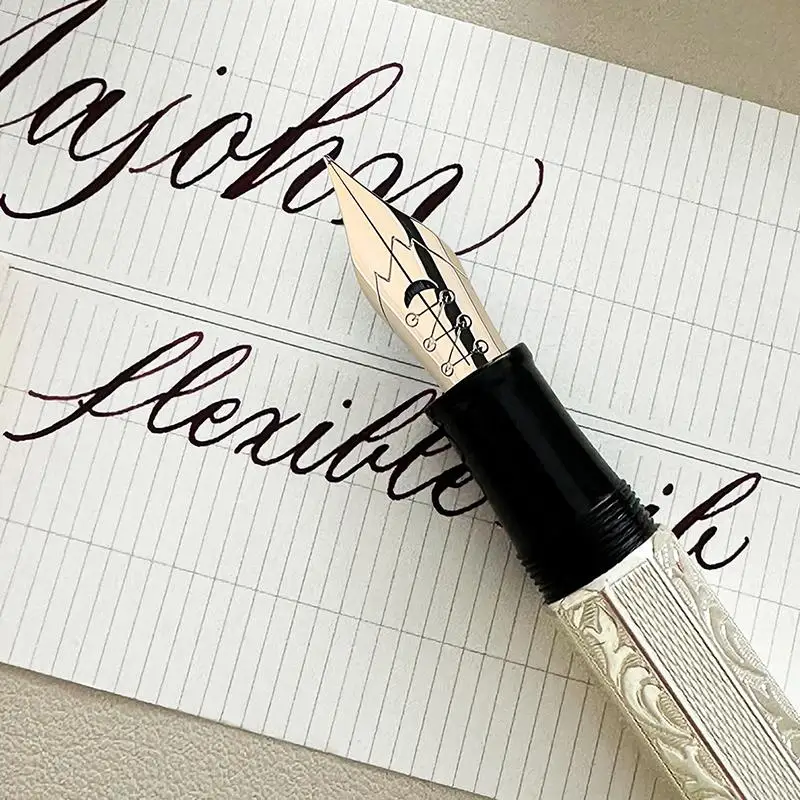 Majohn
flexible nib